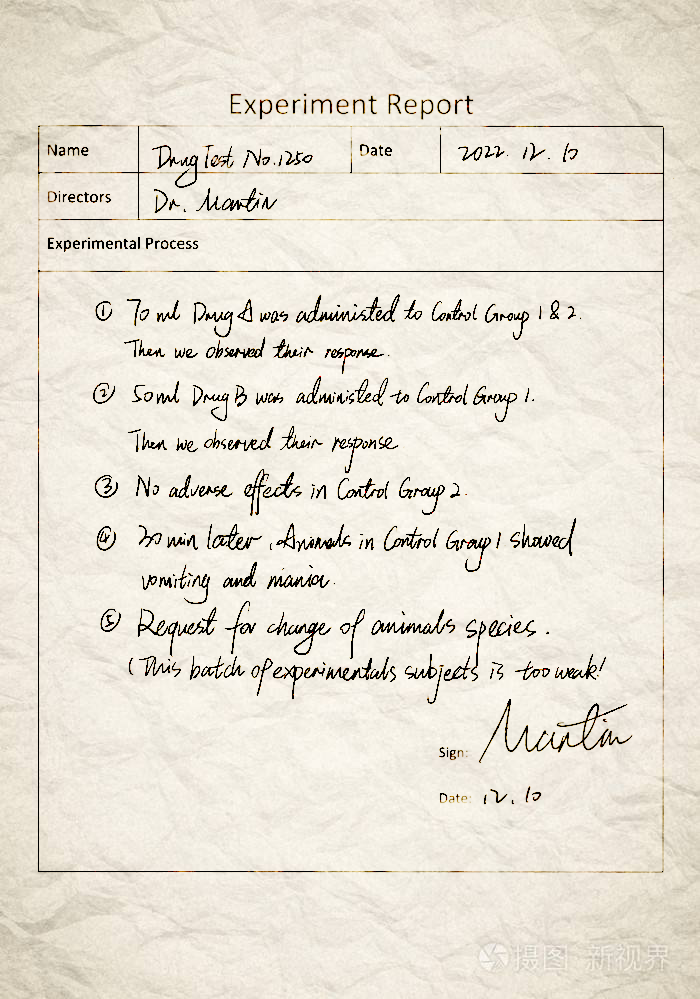 Experiment Report
Name Drug Test No.1250 Date 2022. 12. 10
Directors Dr. Martin
Experimental Process
① 70 ml Drug A was administed to Control Group 1 & 2.
Then we observed their response.
② 50ml Drug B was administed to Control Group 1.
Then we observed their response
③ No adverse effects in Control Group 2.
④ 30 min later, Animals in Control Group 1 showed
vomiting and mania.
⑤ Request for change of animals species.
(This batch of experimentals subjects is too weak!
Sign: Martin
Date: 12. 10
摄图 新视界